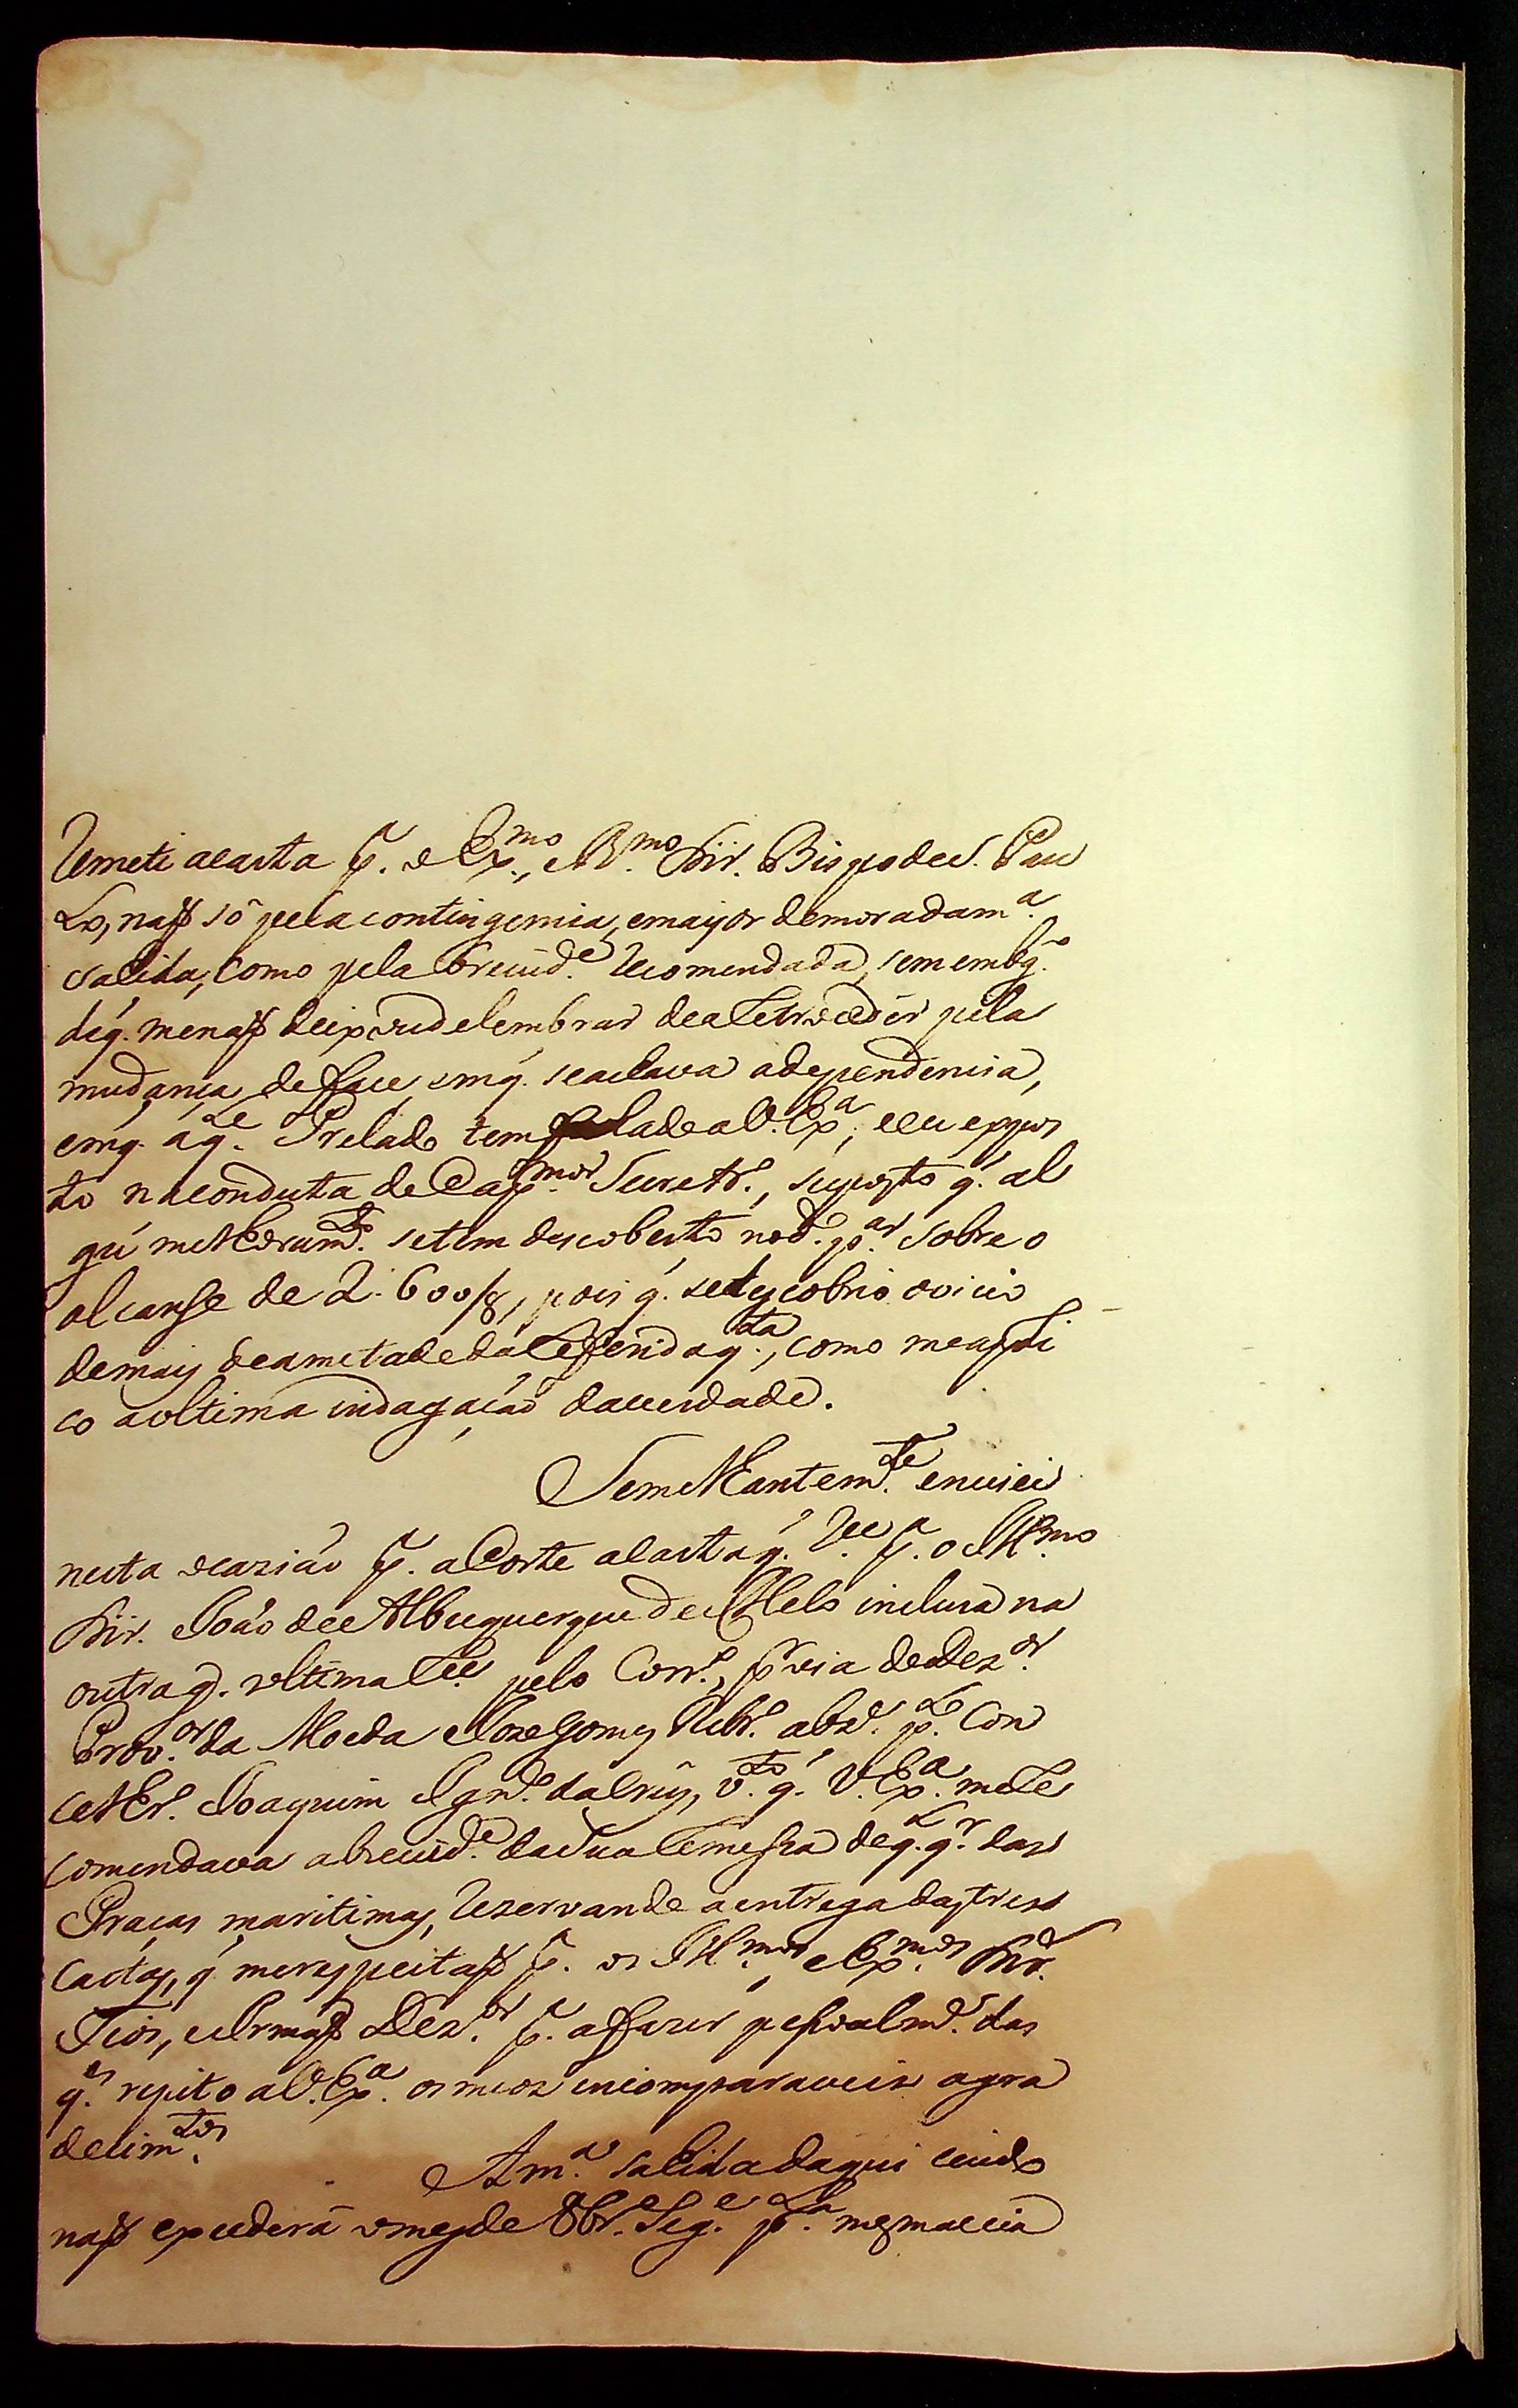 Remeti acarta p.ª o Ex.mo, e R.mo Snr. Bispo de S. Pau
Lo, naõ só pela contingencia, emayor demora da m.ª
salida, como pela brevid.e Recomendada, sem emb.go
deq. me naõ deixou de lembrar dea Retroceder pela
mudança de face, emq. seachava adependencia,
emq. áq.Le Prelado tem falado a V. Ex.ª, eeu expos
to naconduta de Cap.mor Secretr.o, suposto q. al
gũ melhoram.to setem descoberto no d. p.ar sobre o
alcanse de 2. 600/8, pois q. sedescobrio ovicio
demais deametade da Referida q.ta, como meapli
co aultima indagaçaõ daverdade.
Semelhantem.te enviei
nesta ocaziaõ p.ª aCorte acarta q. V. Ex.ª p.ª o Ill.mo
Snr. Joaõ de Albuquerque de Mello inclusa na
outra q. ultima pelo Corr.o, p.r via do Dez.or
Prov.or da Moeda Joze Gomes Ribr.o abz.e p.Lo Con
celhr.o Joaquim Ign.o da Cruz, v.to q. V. Ex.ª meRe
comendava abrevid.e da Sua Remessa de q.q.r das
Praças maritimas, Rezervando aentrega das tres
Cartas, q. me respeitaõ p.ª os Ill.mos, e Ex.mos Snr.es
Tios, e Irmaõ Dez.or p.ª afazer pessoalm.e das
q.es repito a V. Ex.ª os meos incomparaveis agra
decim.tos
Am.ª salida daqui cuido
naõ excederá omez de 8br.o Seg.e p.La mesma via